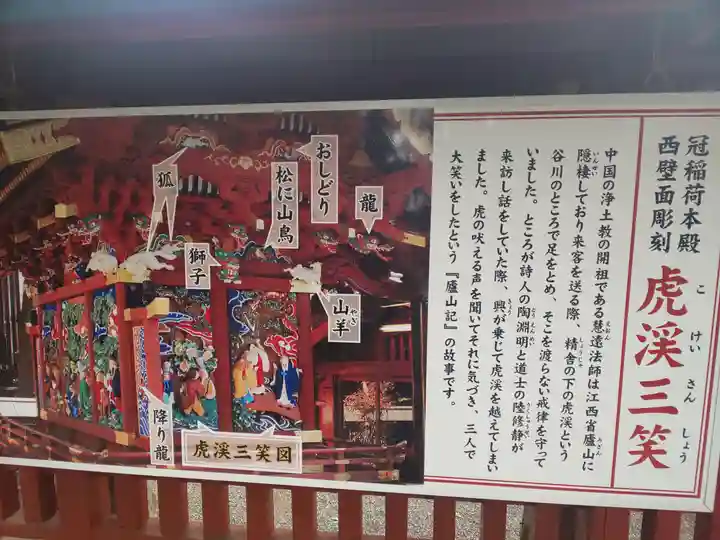 冠稲荷本殿
西壁面彫刻
虎渓三笑
こ けい さん しょう
中国の浄土教の開祖である慧遠法師は江西省廬山に
隠棲しており来客を送る際、精舎の下の虎渓という
谷川のところで足をとめ、そこを渡らない戒律を守って
いました。ところが詩人の陶淵明と道士の陸修静が
来訪し話をしていた際、興が乗じて虎渓を越えてしまい
ました。虎の吠える声を聞いてそれに気づき、三人で
大笑いをしたという『廬山記』の故事です。
狐
おしどり
松に山鳥
龍
獅子
山羊
やぎ
降り龍
虎渓三笑図